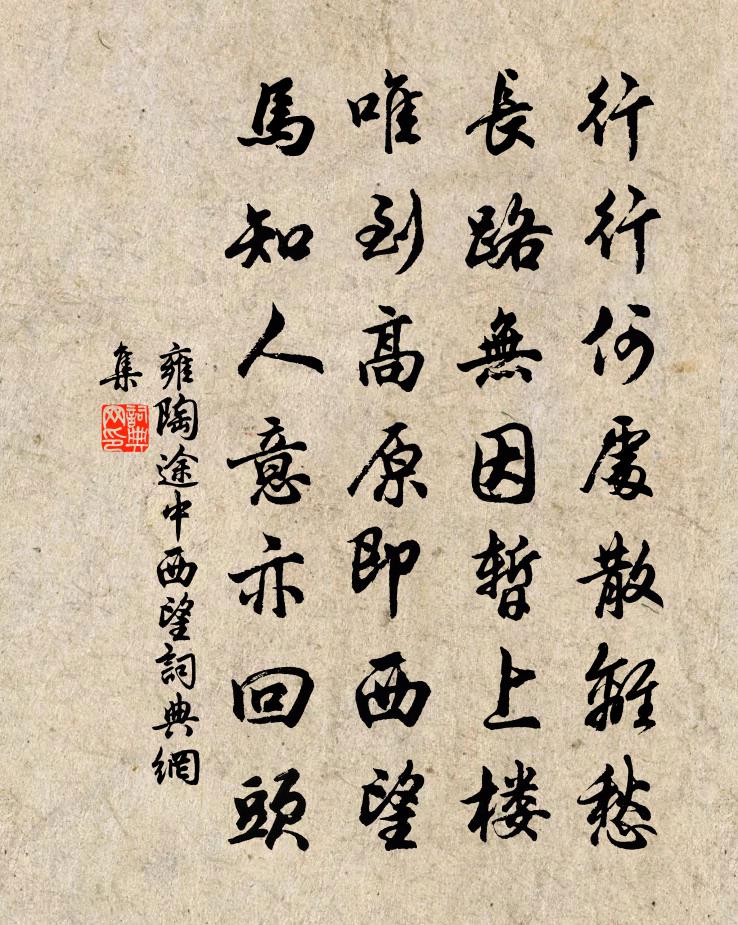 行行何處散離愁
長路無因暫上楼
唯到高原即西望
馬知人意亦回頭
雍陶途中西望詞典網
集
詞典
网印